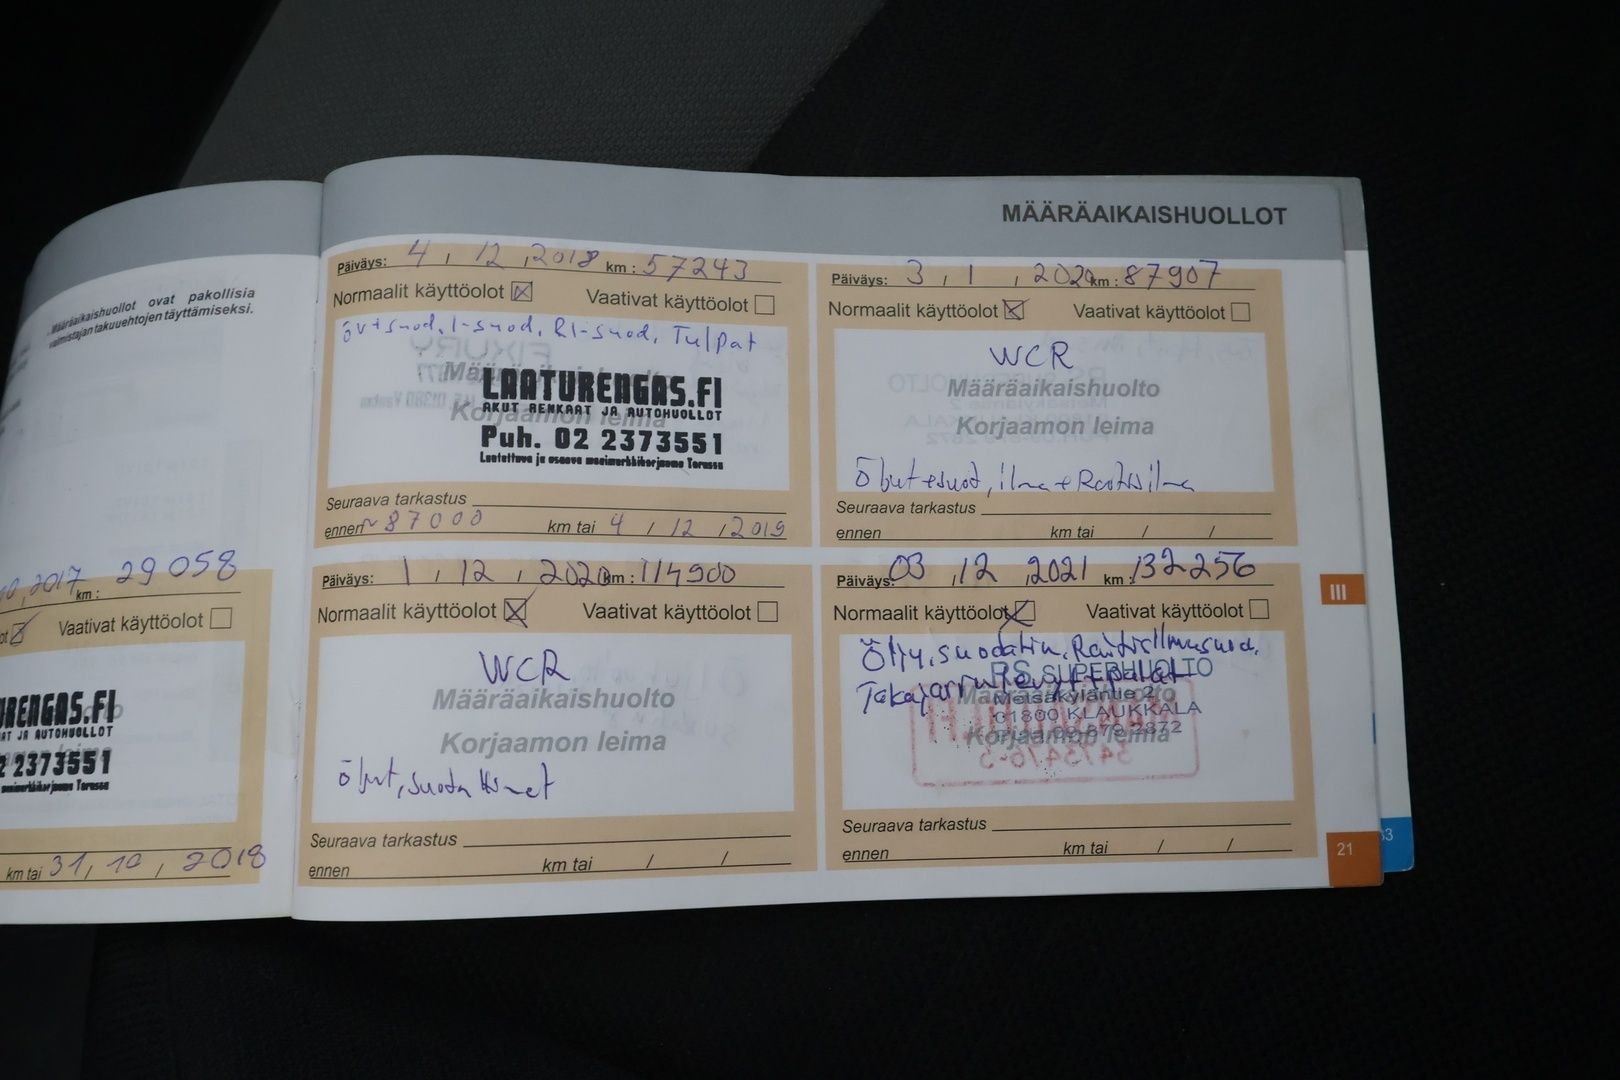 MÄÄRÄAIKAISHUOLLOT
Määräaikaishuollot ovat pakollisia
valmistajan takuuehtojen täyttämiseksi.
2017 km: 29 058
Vaativat käyttöolot
RENGAS.FI
AT JA AUTOHUOLLOT
2 2373551
km tai 31, 10, 2018
Päiväys: 4, 12, 2018 km: 57243
Normaalit käyttöolot Vaativat käyttöolot
öv+suod, I-suod, RI-suod, Tulpat
Määräaikaishuolto
Korjaamon leima
LAATURENGAS.FI
AKUT RENKAAT JA AUTOHUOLLOT
Puh. 02 2373551
Luotettava ja osaava monimerkkikorjaamo Turussa
Seuraava tarkastus
ennen ~87000 km tai 4 / 12 / 2019
Päiväys: 3, 1, 2020 km: 87907
Normaalit käyttöolot Vaativat käyttöolot
WCR
Määräaikaishuolto
Korjaamon leima
Öljyt+suod, ilma+Raitisilma
Seuraava tarkastus
ennen km tai / /
Päiväys: 1, 12, 2020 km: 114900
Normaalit käyttöolot Vaativat käyttöolot
WCR
Määräaikaishuolto
Korjaamon leima
Öljyt, suodattimet
Seuraava tarkastus
ennen km tai / /
Päiväys: 03, 12, 2021 km: 132256
Normaalit käyttöolot Vaativat käyttöolot
Öljy, suodatin, Raitisilmasuod,
Takajarrulevyt+palat
RS SUPERHUOLTO
Määräaikaishuolto
Metsäkyläntie 2
01800 KLAUKKALA
Korjaamon leima
Seuraava tarkastus
ennen km tai / /
III
21
63